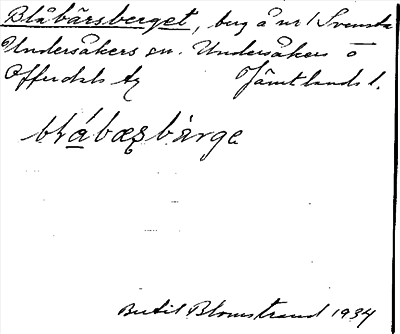 Blåbärsberget, berg å nr 1 Svenska
Undersåkers sn. Undersåkers o
Offerdals tg Jämtlands l.
blábæʂbárge
Bertil Blomstrand 1934